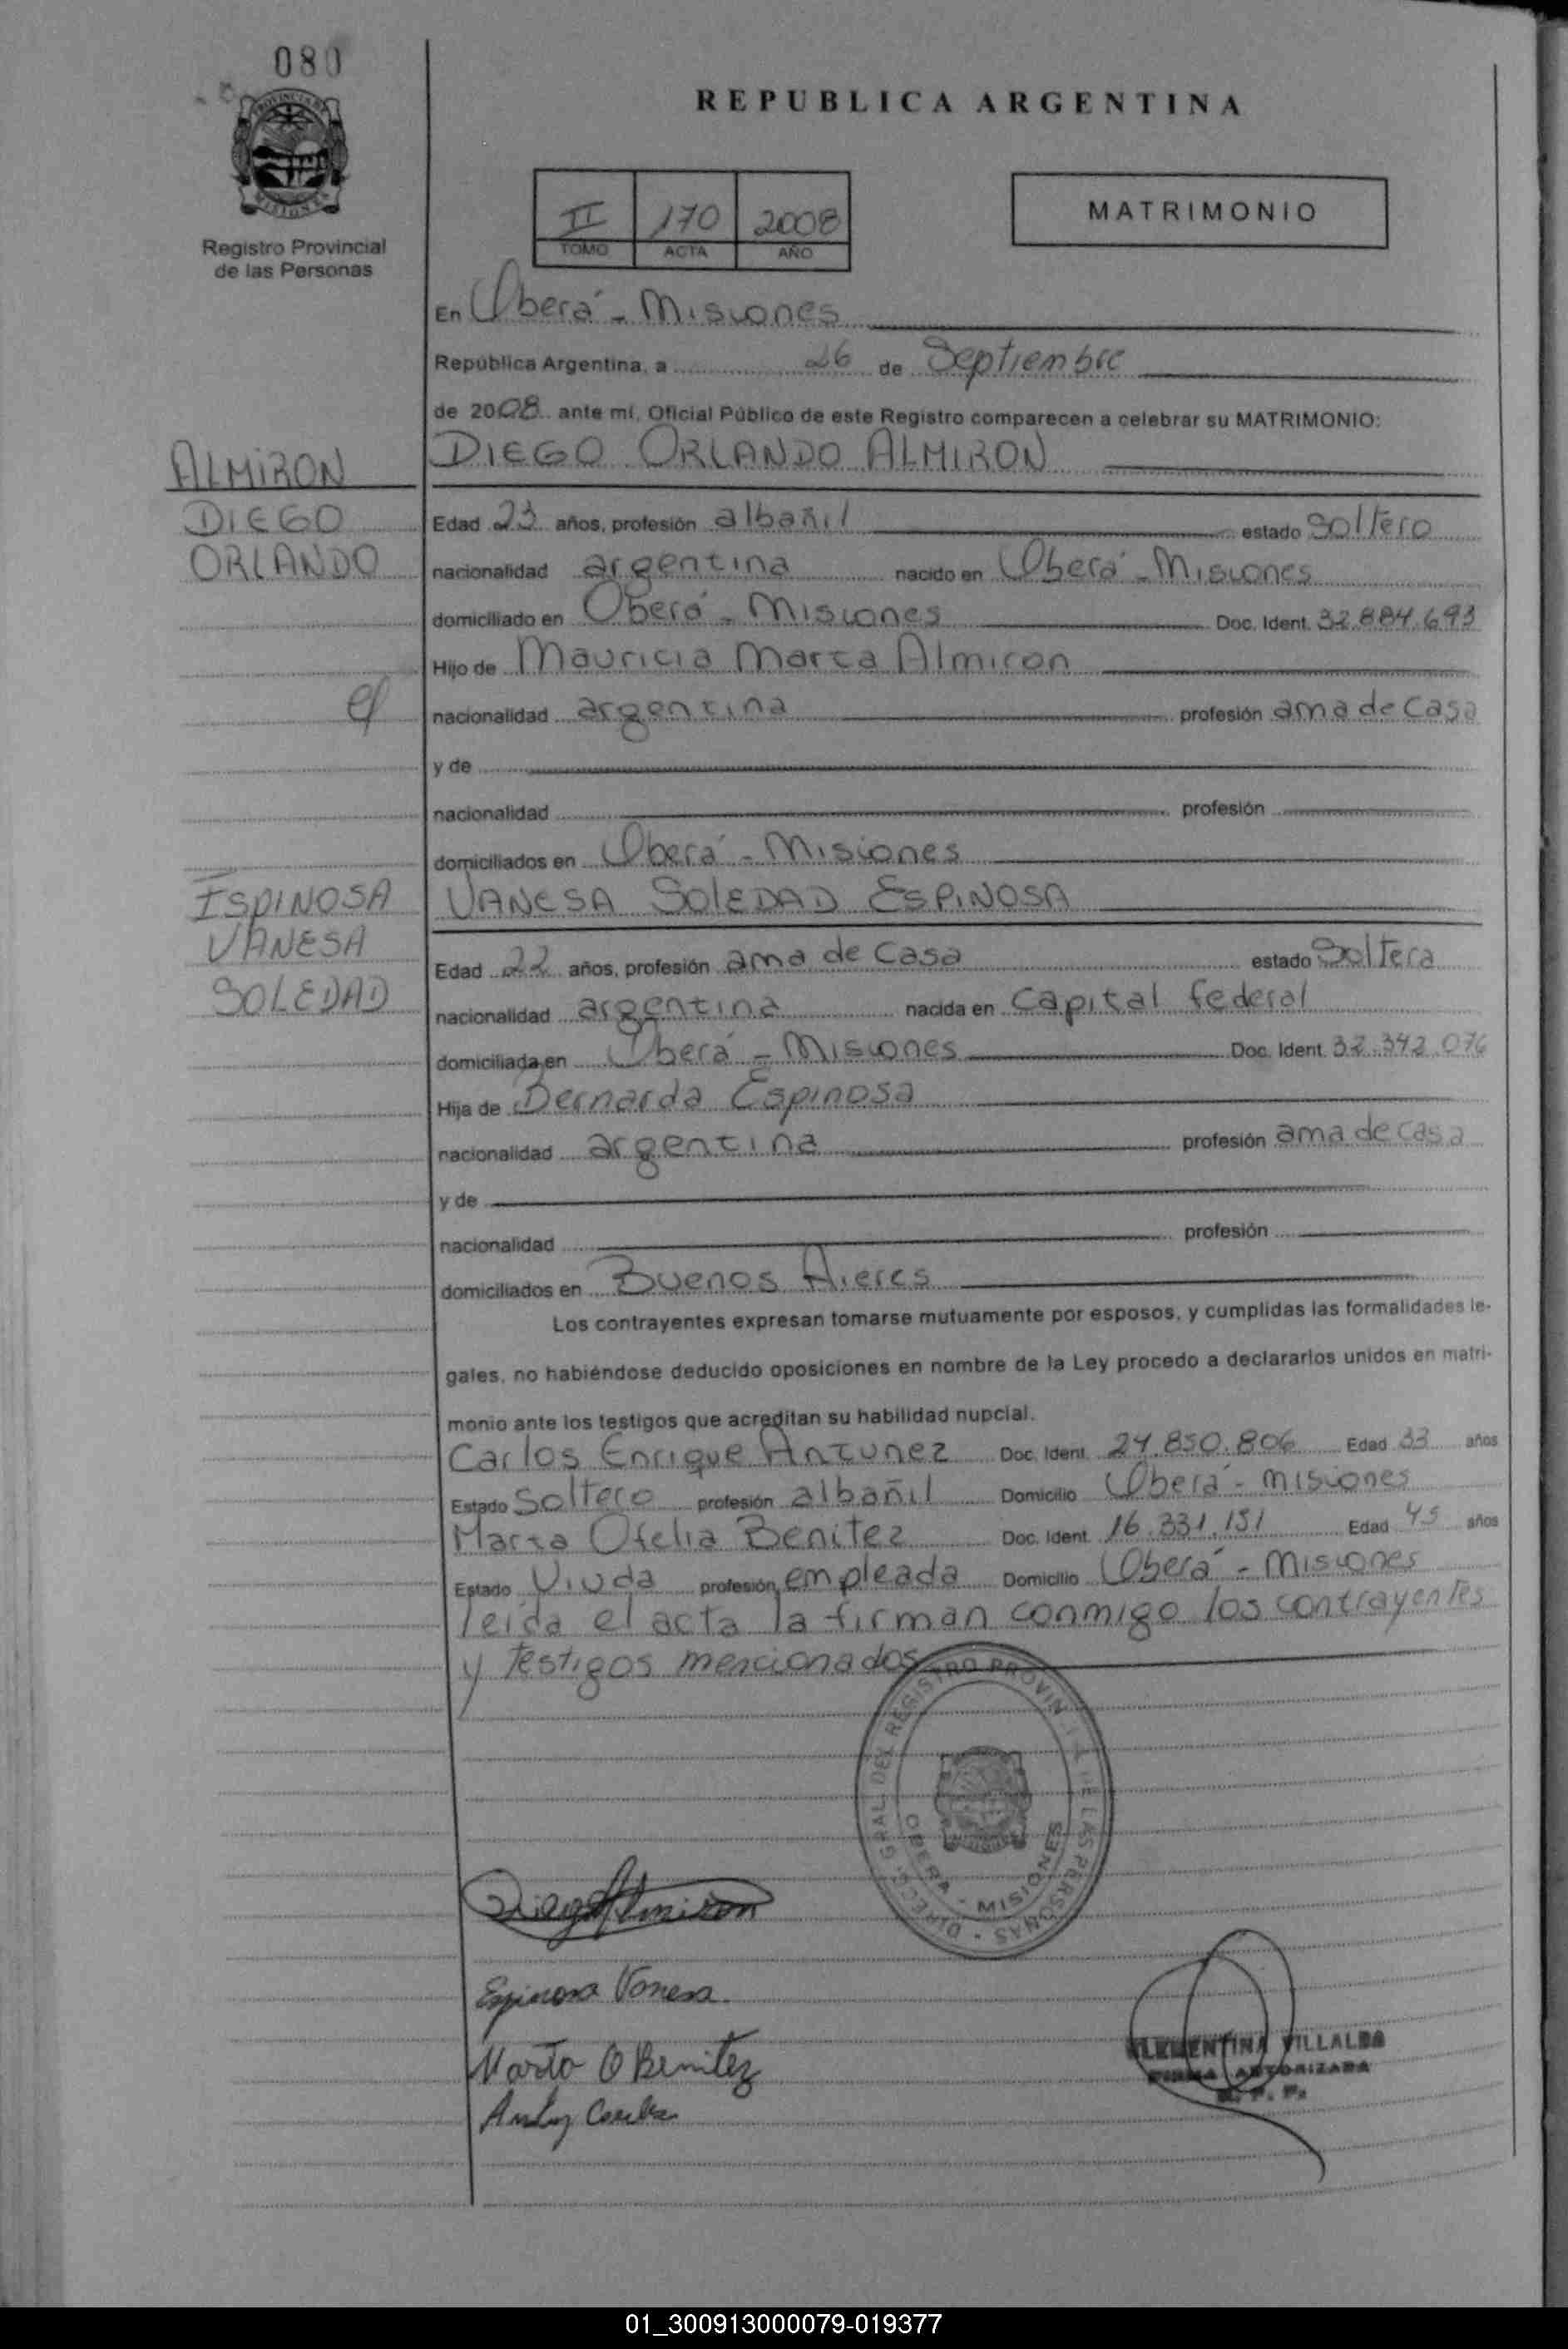 080
REPUBLICA ARGENTINA
PROVINCIA DE
MISIONES
Registro Provincial
de las Personas
II 170 2008
TOMO ACTA AÑO
MATRIMONIO
En Oberá - Misiones
República Argentina, a 26 de Septiembre
de 2008 ante mí, Oficial Público de este Registro comparecen a celebrar su MATRIMONIO:
ALMIRON
DIEGO
ORLANDO
DIEGO ORLANDO ALMIRON
Edad 23 años, profesión albañil estado Soltero
nacionalidad argentina nacido en Oberá - Misiones
domiciliado en Oberá - Misiones Doc. Ident. 32.884.693
Hijo de Mauricia Marta Almiron
nacionalidad argentina profesión ama de casa
y de
nacionalidad profesión
domiciliados en Oberá - Misiones
ESPINOSA
VANESA
SOLEDAD
VANESA SOLEDAD ESPINOSA
Edad 22 años, profesión ama de casa estado Soltera
nacionalidad argentina nacida en Capital federal
domiciliada en Oberá - Misiones Doc. Ident. 32.342.076
Hija de Bernarda Espinosa
nacionalidad argentina profesión ama de casa
y de
nacionalidad profesión
domiciliados en Buenos Aieres
Los contrayentes expresan tomarse mutuamente por esposos, y cumplidas las formalidades le-
gales, no habiéndose deducido oposiciones en nombre de la Ley procedo a declararlos unidos en matri-
monio ante los testigos que acreditan su habilidad nupcial.
Carlos Enrique Antunez Doc. Ident. 24.850.806 Edad 33 años
Estado Soltero profesión albañil Domicilio Oberá - misiones
Marta Ofelia Benitez Doc. Ident. 16.331.151 Edad 45 años
Estado Viuda profesión empleada Domicilio Oberá - Misiones
leída el acta la firman conmigo los contrayentes
y testigos mencionados
DIRECC. GRAL. DEL REGISTRO PROVINCIAL DE LAS PERSONAS
OBERA - MISIONES
Diego Almiron
Espinosa Vanesa
Marta O Benitez
CLEMENTINA VILLALBA
FIRMA AUTORIZADA
R. P. P.
01_300913000079-019377